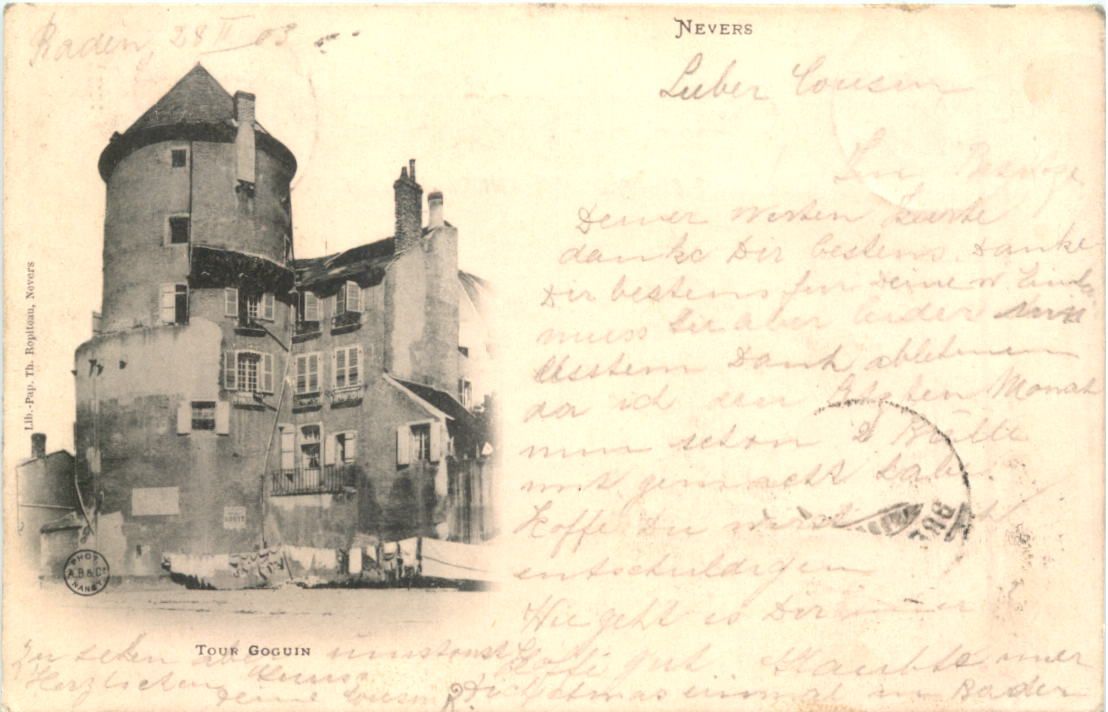 Baden, 28 II 03
NEVERS
Lieber Cousin
Im Besitze
Deiner Werten Karte
danke Dir bestens. Danke
Dir bestens für Deine W.
muss Sie aber leider
bestem Dank ablehnen
da ich den letzten Monat
nun schon 2 Bälle
mit gemacht habe.
Hoffe Du wirst
entschuldigen
Wie geht es Dir immer
Hoffe gut. Glaubte immer
Dich etwas einmal in Baden
zu sehen aber umsonst
Herzlichen Gruss
Deine Cousine R.
TOUR GOGUIN
Lib.-Pap. Th. Ropiteau, Nevers
PHOT
A.B & Co
NANCY